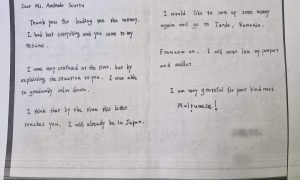 Dear Mr. Andrada
Thank you for lending me the money.
I had lost everything and you came to my
rescue.
I was very confused at the time, but by
explaining the situation to you, I was able
to gradually calm down.
I think that by the time this letter
reaches you, I will already be in Japan.
I would like to save up some money
again and go to Turda, Romania.
From now on, I will never lose my passport
and wallet.
I am very grateful for your kindness.
Mulțumesc!